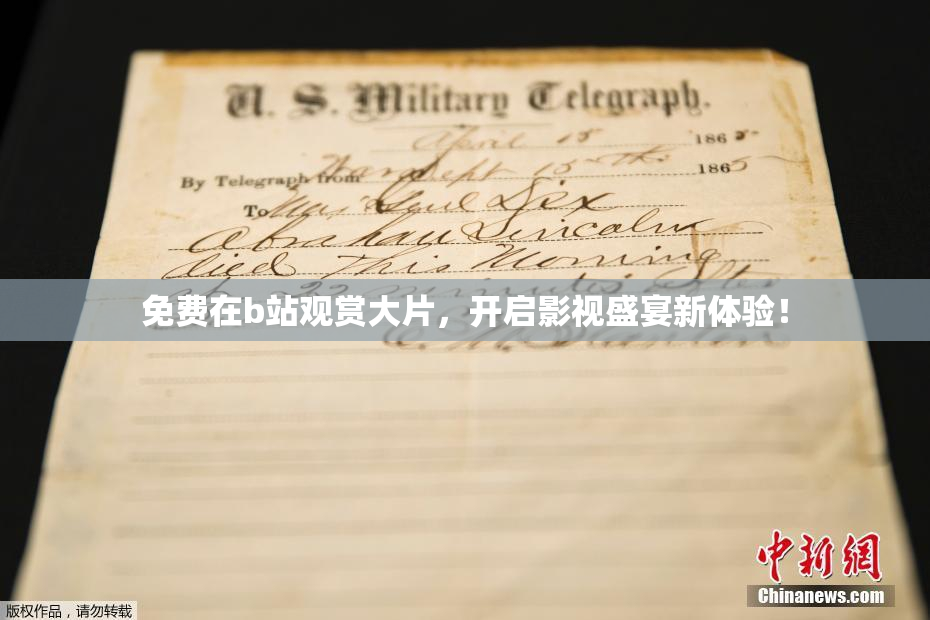 U. S. Military Telegraph.
April 15 1865
By Telegraph from War Dept 15th 1865
To Maj Genl Dix
Abraham Lincoln
died This Morning
at 22 minutes after
免费在b站观赏大片，开启影视盛宴新体验！
E. M. Stanton
中新网
Chinanews.com
版权作品，请勿转载